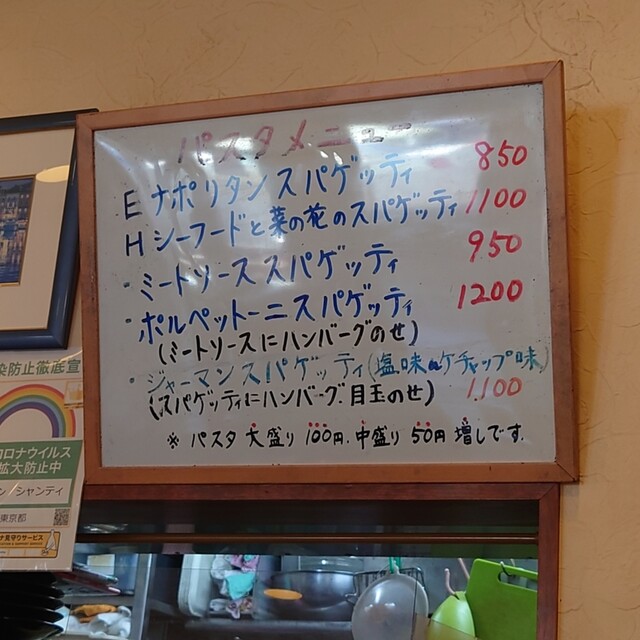 パスタメニュー
E ナポリタンスパゲッティ 850
H シーフードと菜の花のスパゲッティ 1100
・ミートソーススパゲッティ 950
・ポルペットーニスパゲッティ 1200
(ミートソースにハンバーグのせ)
・ジャーマンスパゲッティ(塩味orケチャップ味)
(スパゲッティにハンバーグ.目玉のせ) 1,100
※ パスタ 大盛り 100円. 中盛り 50円 増しです.
染防止徹底宣
コロナウイルス
拡大防止中
ン シャンティ
東京都
ナ見守りサービス